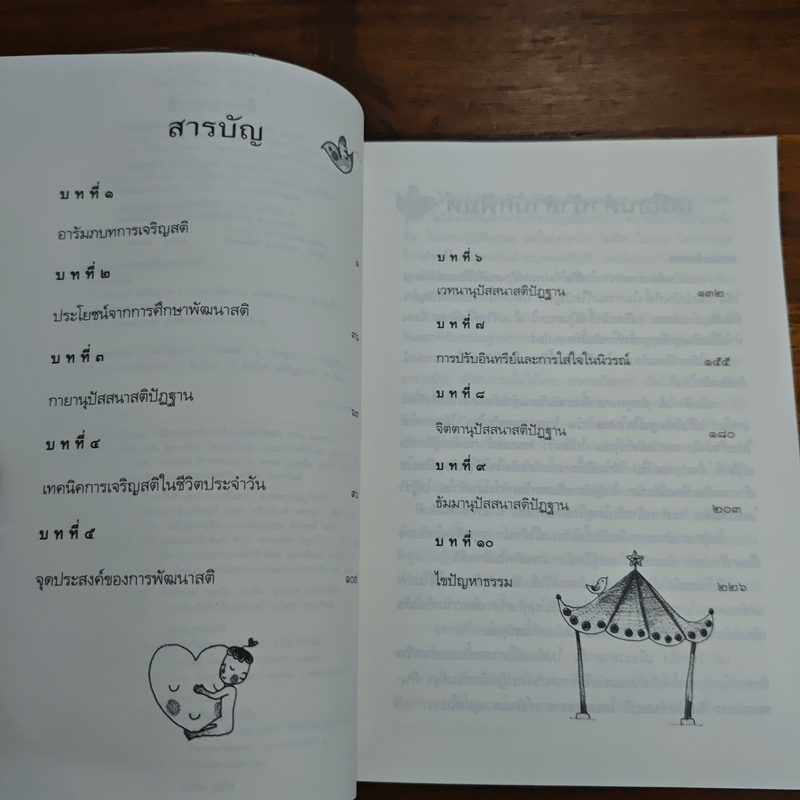 สารบัญ
บทที่ ๑
อารัมภบทการเจริญสติ
๑
บทที่ ๒
ประโยชน์จากการศึกษาพัฒนาสติ
บทที่ ๓
กายานุปัสสนาสติปัฏฐาน
บทที่ ๔
เทคนิคการเจริญสติในชีวิตประจำวัน
บทที่ ๕
จุดประสงค์ของการพัฒนาสติ
บทที่ ๖
เวทนานุปัสสนาสติปัฏฐาน ๑๓๒
บทที่ ๗
การปรับอินทรีย์และการใส่ใจในนิวรณ์ ๑๕๕
บทที่ ๘
จิตตานุปัสสนาสติปัฏฐาน ๑๘๐
บทที่ ๙
ธัมมานุปัสสนาสติปัฏฐาน ๒๐๓
บทที่ ๑๐
ไขปัญหาธรรม ๒๒๖